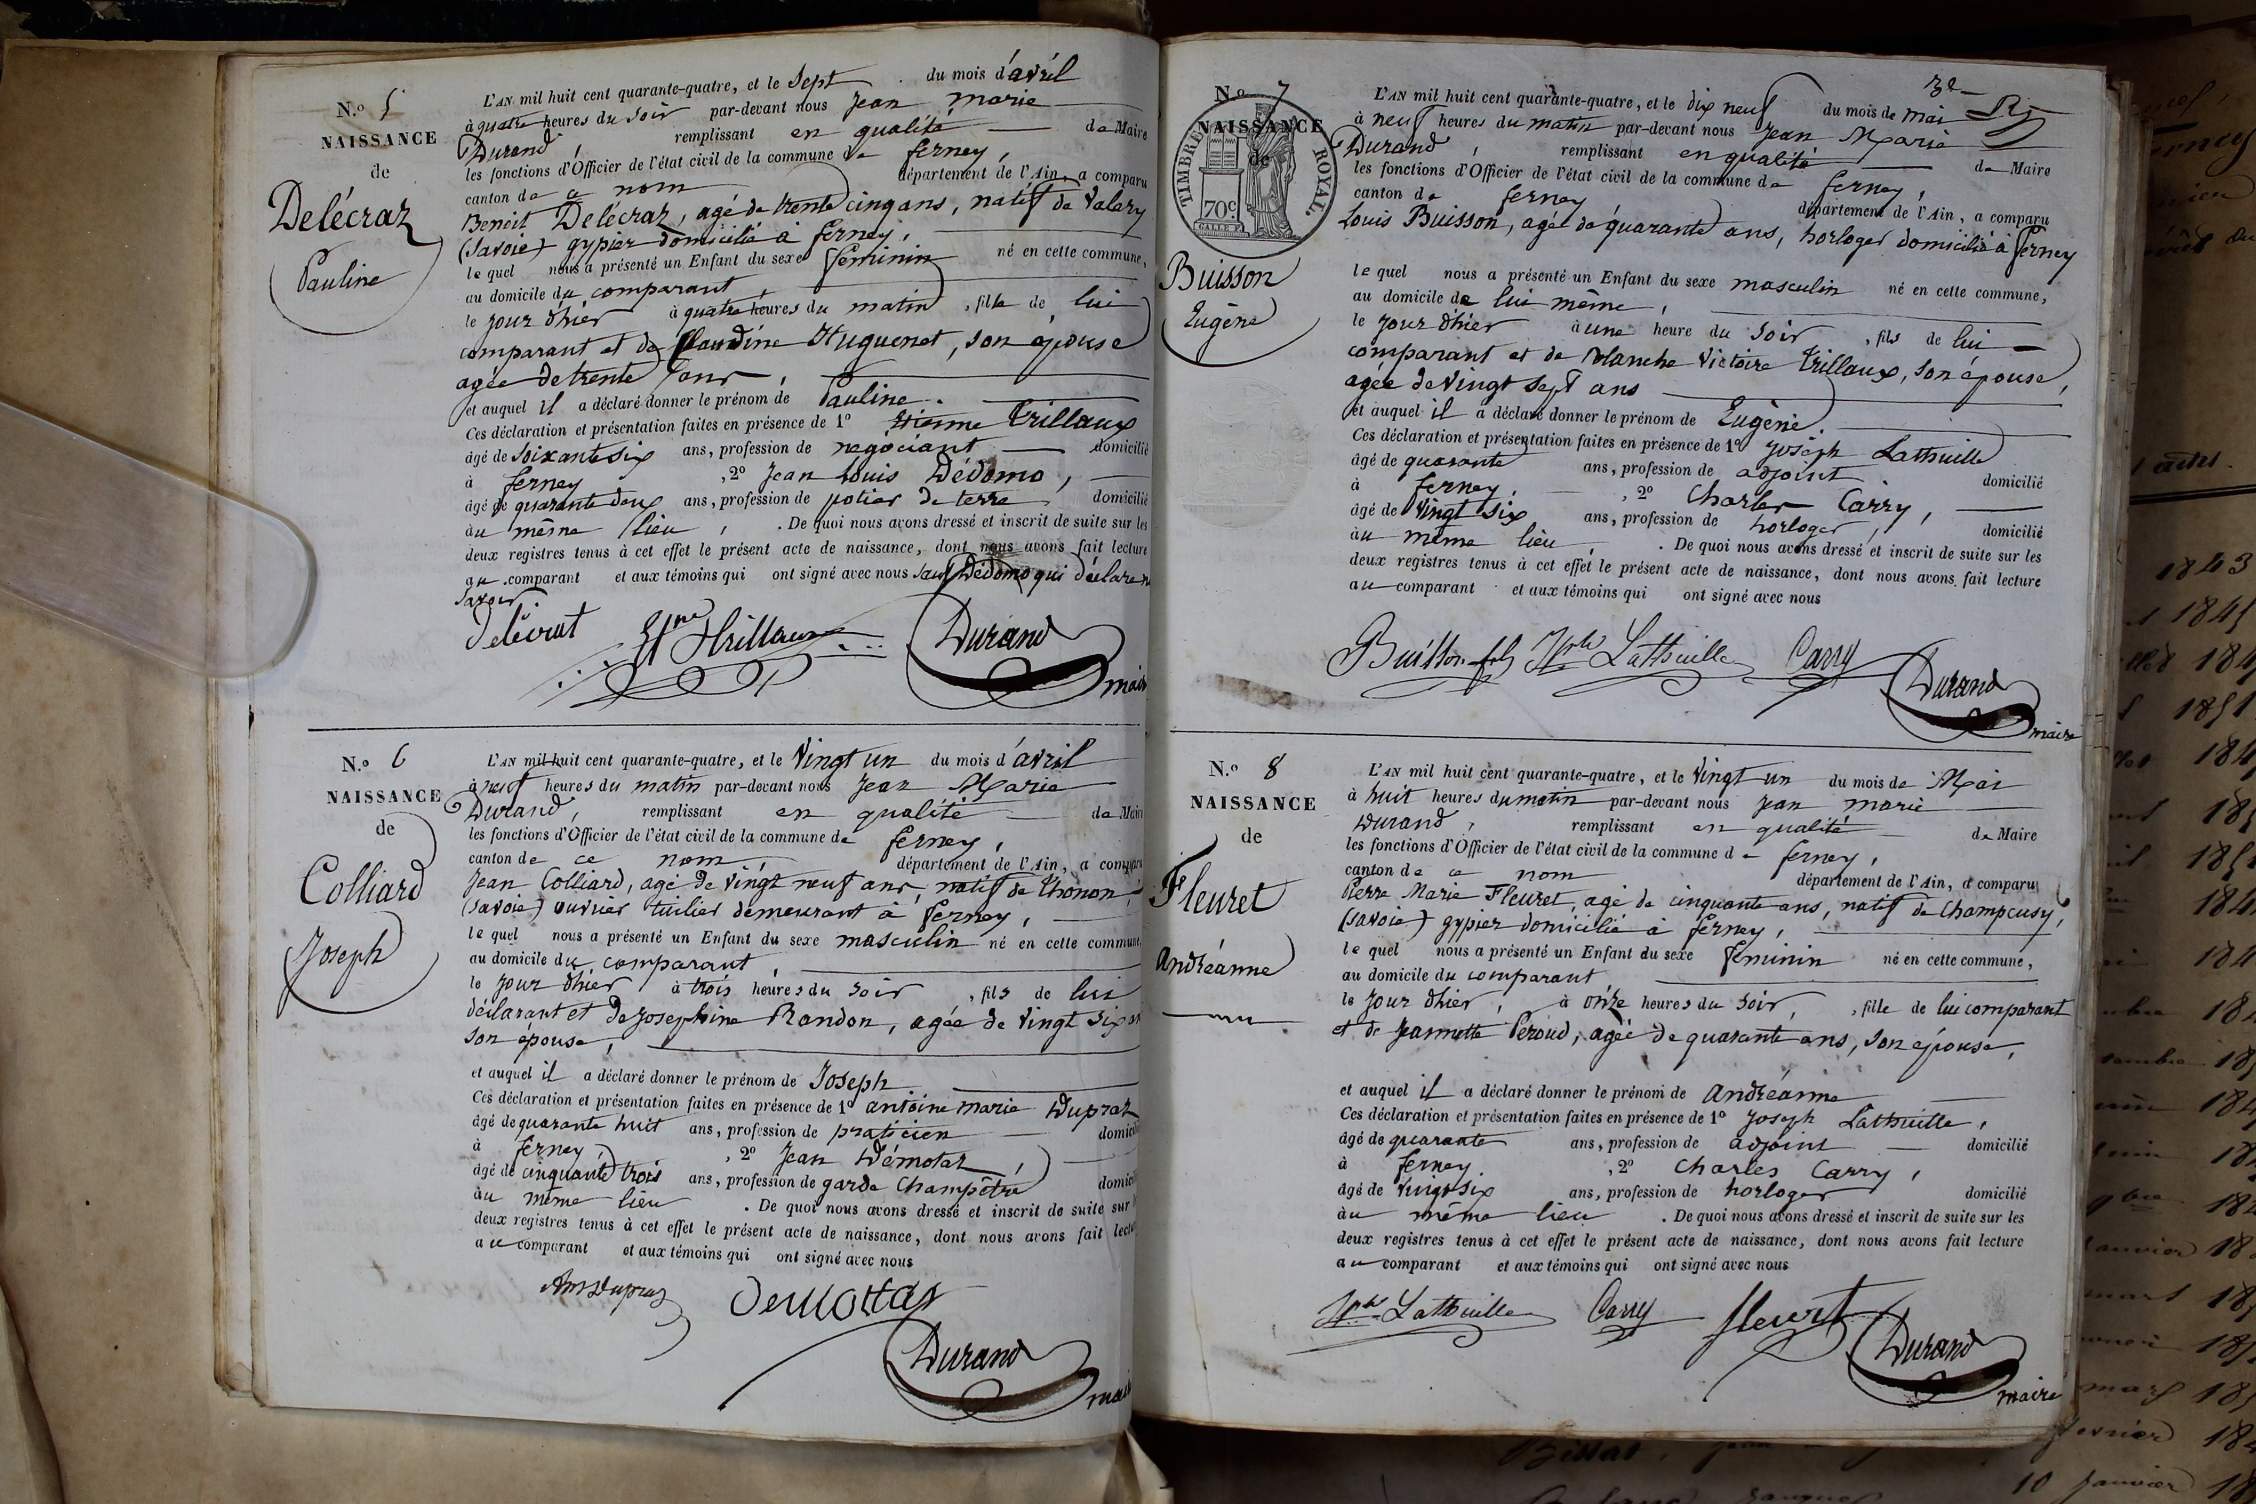 N.o 5
NAISSANCE
de
Delécraz
Pauline
L'AN mil huit cent quarante-quatre, et le Sept du mois d'avril
à quatre heures du soir par-devant nous Jean marie
Durand, remplissant en qualité de Maire
les fonctions d'Officier de l'état civil de la commune de ferney,
canton de ce nom département de l'Ain, a comparu
Benoit Delécraz, agé de trente cinq ans, natif de Valery
(Savoie) gypier domicilié à ferney,
le quel nous a présenté un Enfant du sexe feminin né en cette commune,
au domicile du comparant,
le jour d'hier à quatre heures du matin, fille de lui
comparant et de Claudine Huguenet, son épouse
agée de trente ans,
et auquel il a déclaré donner le prénom de Pauline.
Ces déclaration et présentation faites en présence de 1o Etienne Trillaux
âgé de soixante six ans, profession de negociant domicilié
à ferney, 2o Jean Louis Dédomo,
âgé de quarante deux ans, profession de potier de terre domicilié
au même lieu, . De quoi nous avons dressé et inscrit de suite sur les
deux registres tenus à cet effet le présent acte de naissance, dont nous avons fait lecture
au comparant et aux témoins qui ont signé avec nous sauf Dédomo qui déclare ne
savoir
delécrat Etne Trillaux Durand
maire
N.o 6
NAISSANCE
de
Colliard
Joseph
L'AN mil huit cent quarante-quatre, et le Vingt un du mois d'avril
à neuf heures du matin par-devant nous Jean Marie
Durand, remplissant en qualité de Maire
les fonctions d'Officier de l'état civil de la commune de ferney,
canton de ce nom, département de l'Ain, a comparu
Jean Colliard, agé de vingt neuf ans, natif de Thonon,
(Savoie) ouvrier tuilier demeurant à ferney,
le quel nous a présenté un Enfant du sexe masculin né en cette commune,
au domicile du comparant,
le jour d'hier à trois heures du soir, fils de lui
déclarant et de Josephine Rondon, agée de vingt six ans
son épouse,
et auquel il a déclaré donner le prénom de Joseph
Ces déclaration et présentation faites en présence de 1o antoine marie Dupraz
âgé de quarante huit ans, profession de praticien domicilié
à ferney, 2o Jean Démotaz,
âgé de cinquante trois ans, profession de garde Champêtre domicilié
au même lieu . De quoi nous avons dressé et inscrit de suite sur les
deux registres tenus à cet effet le présent acte de naissance, dont nous avons fait lecture
au comparant et aux témoins qui ont signé avec nous
AmDupraz Demottaz
Durand
maire
3e
N.o 7
NAISSANCE
de
TIMBRE ROYAL.
70c.
Buisson
Eugène
L'AN mil huit cent quarante-quatre, et le dix neuf du mois de mai
à neuf heures du matin par-devant nous Jean Marie
Durand, remplissant en qualité de Maire
les fonctions d'Officier de l'état civil de la commune de ferney,
canton de ferney département de l'Ain, a comparu
Louis Buisson, agé de quarante ans, horloger domicilié à ferney
le quel nous a présenté un Enfant du sexe masculin né en cette commune,
au domicile de lui même,
le jour d'hier à une heure du soir, fils de lui
comparant et de Blanche Victoire Trillaux, son épouse,
agée de vingt sept ans
et auquel il a déclaré donner le prénom de Eugène.
Ces déclaration et présentation faites en présence de 1o Joseph Lathuille
âgé de quarante ans, profession de adjoint domicilié
à ferney, 2o Charles Carry,
âgé de vingt six ans, profession de horloger, domicilié
au même lieu, . De quoi nous avons dressé et inscrit de suite sur les
deux registres tenus à cet effet le présent acte de naissance, dont nous avons fait lecture
au comparant et aux témoins qui ont signé avec nous
Buisson fils Jph Lathuille Carry Durand
maire
N.o 8
NAISSANCE
de
Fleuret
Andréanne
L'AN mil huit cent quarante-quatre, et le Vingt un du mois de Mai
à huit heures du matin par-devant nous Jean marie
Durand, remplissant en qualité de Maire
les fonctions d'Officier de l'état civil de la commune de ferney,
canton de ce nom département de l'Ain, a comparu
Pierre Marie Fleuret, agé de cinquante ans, natif de Champcusy,
(Savoie) gypier domicilié à ferney,
le quel nous a présenté un Enfant du sexe feminin né en cette commune,
au domicile du comparant
le jour d'hier, à onze heures du soir, fille de lui comparant
et de Jeannette Peroud, agée de quarante ans, son épouse,
et auquel il a déclaré donner le prénom de Andréanne
Ces déclaration et présentation faites en présence de 1o Joseph Lathuille,
âgé de quarante ans, profession de adjoint domicilié
à ferney, 2o Charles Carry,
âgé de vingt six ans, profession de horloger domicilié
au même lieu . De quoi nous avons dressé et inscrit de suite sur les
deux registres tenus à cet effet le présent acte de naissance, dont nous avons fait lecture
au comparant et aux témoins qui ont signé avec nous
Jph Lathuille Carry fleuret Durand
maire
1843
1845
1851
10 Janvier